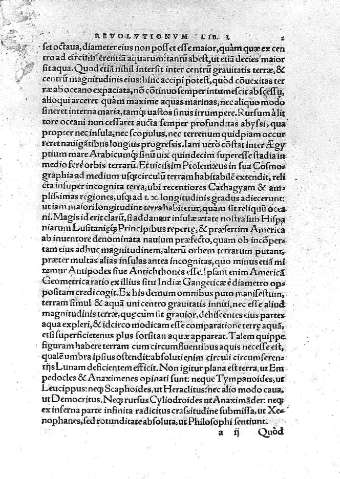 REVOLVTIONVM LIB. I. 2
set octaua, diameter eius non posset esse maior, quàm quæ ex cen
tro ad circũferentiã aquarum: tantũ abest, ut etiã decies maior
sit aqua. Quod etiã nihil intersit inter centrũ grauitatis terræ, &
centrũ magnitudinis eius: hinc accipi potest, quòd cõuexitas ter
ræ ab oceano expaciata, nõ cõtinuo semper intumescit abscessu,
alioqui arceret quàm maxime aquas marinas, nec aliquo modo
sineret interna maria, tamq; uastos sinus irrumpere. Rursum à li
tore oceani non cessaret aucta semper profunditas abyssi, qua
propter nec insula, nec scopulus, nec terrenum quidpiam occur
reret nauigantibus longius progressis. Iam uerò cõstat inter Ægy
ptium mare Arabicumq; sinũ uix quindecim superesse stadia in
medio ferè orbis terrarũ. Et uicissim Ptolemæus in sua Cosmo
graphia ad medium usq; circulũ terram habitabilẽ extendit, reli
cta insuper incognita terra, ubi recentiores Cathagyam & am
plissimas regiones, usq; ad lx. longitudinis gradus adiecerunt:
ut iam maiori longitudine terra habitetur, quàm sit reliquũ oce
ani. Magis id erit clarũ, si addantur insulæ ætate nostra sub Hispa
niarum Lusitaniæq; Principibus repertæ, & præsertim America
ab inuentore denominata nauium præfecto, quam ob incõper
tam eius adhuc magnitudinem, alterũ orbem terrarum putant,
præter multas alias insulas antea incognitas, quo minus etiã mi
remur Antipodes siue Antichthones esse. Ipsam enim Americã
Geometrica ratio ex illius situ Indiæ Gangeticæ è diametro op
positam credi cogit. Ex his demum omnibus puto manifestum,
terram simul & aquã uni centro grauitatis inniti, nec esse aliud
magnitudinis terræ, quæ cum sit grauior, dehiscentes eius partes
aqua expleri, & idcirco modicam esse comparatione terræ aquã,
etsi superficietenus plus forsitan aquæ appareat. Talem quippe
figuram habere terram cum circumfluentibus aquis necesse est,
qualẽ umbra ipsius ostendit: absoluti enim circuli circumferen
tijs Lunam deficientem efficit. Non igitur plana est terra, ut Em
pedocles & Anaximenes opinati sunt: neque Tympanoides, ut
Leucippus: neq; Scaphoides, ut Heraclitus: nec alio modo caua,
ut Democritus. Neq; rursus Cylindroides ut Anaximander: neq;
ex inferna parte infinita radicitus crassitudine submissa, ut Xe-
nophanes, sed rotunditate absoluta, ut Philosophi sentiunt.
a ij Quòd